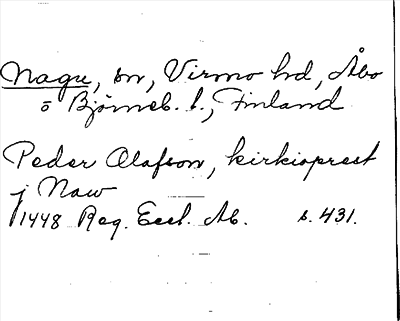 Nagu, sn, Virmo hd, Åbo
o Björneb. l., Finland
Peder Olafson, kirkioprest
j Naw
1448 Reg. Eccl. Ab. s. 431.